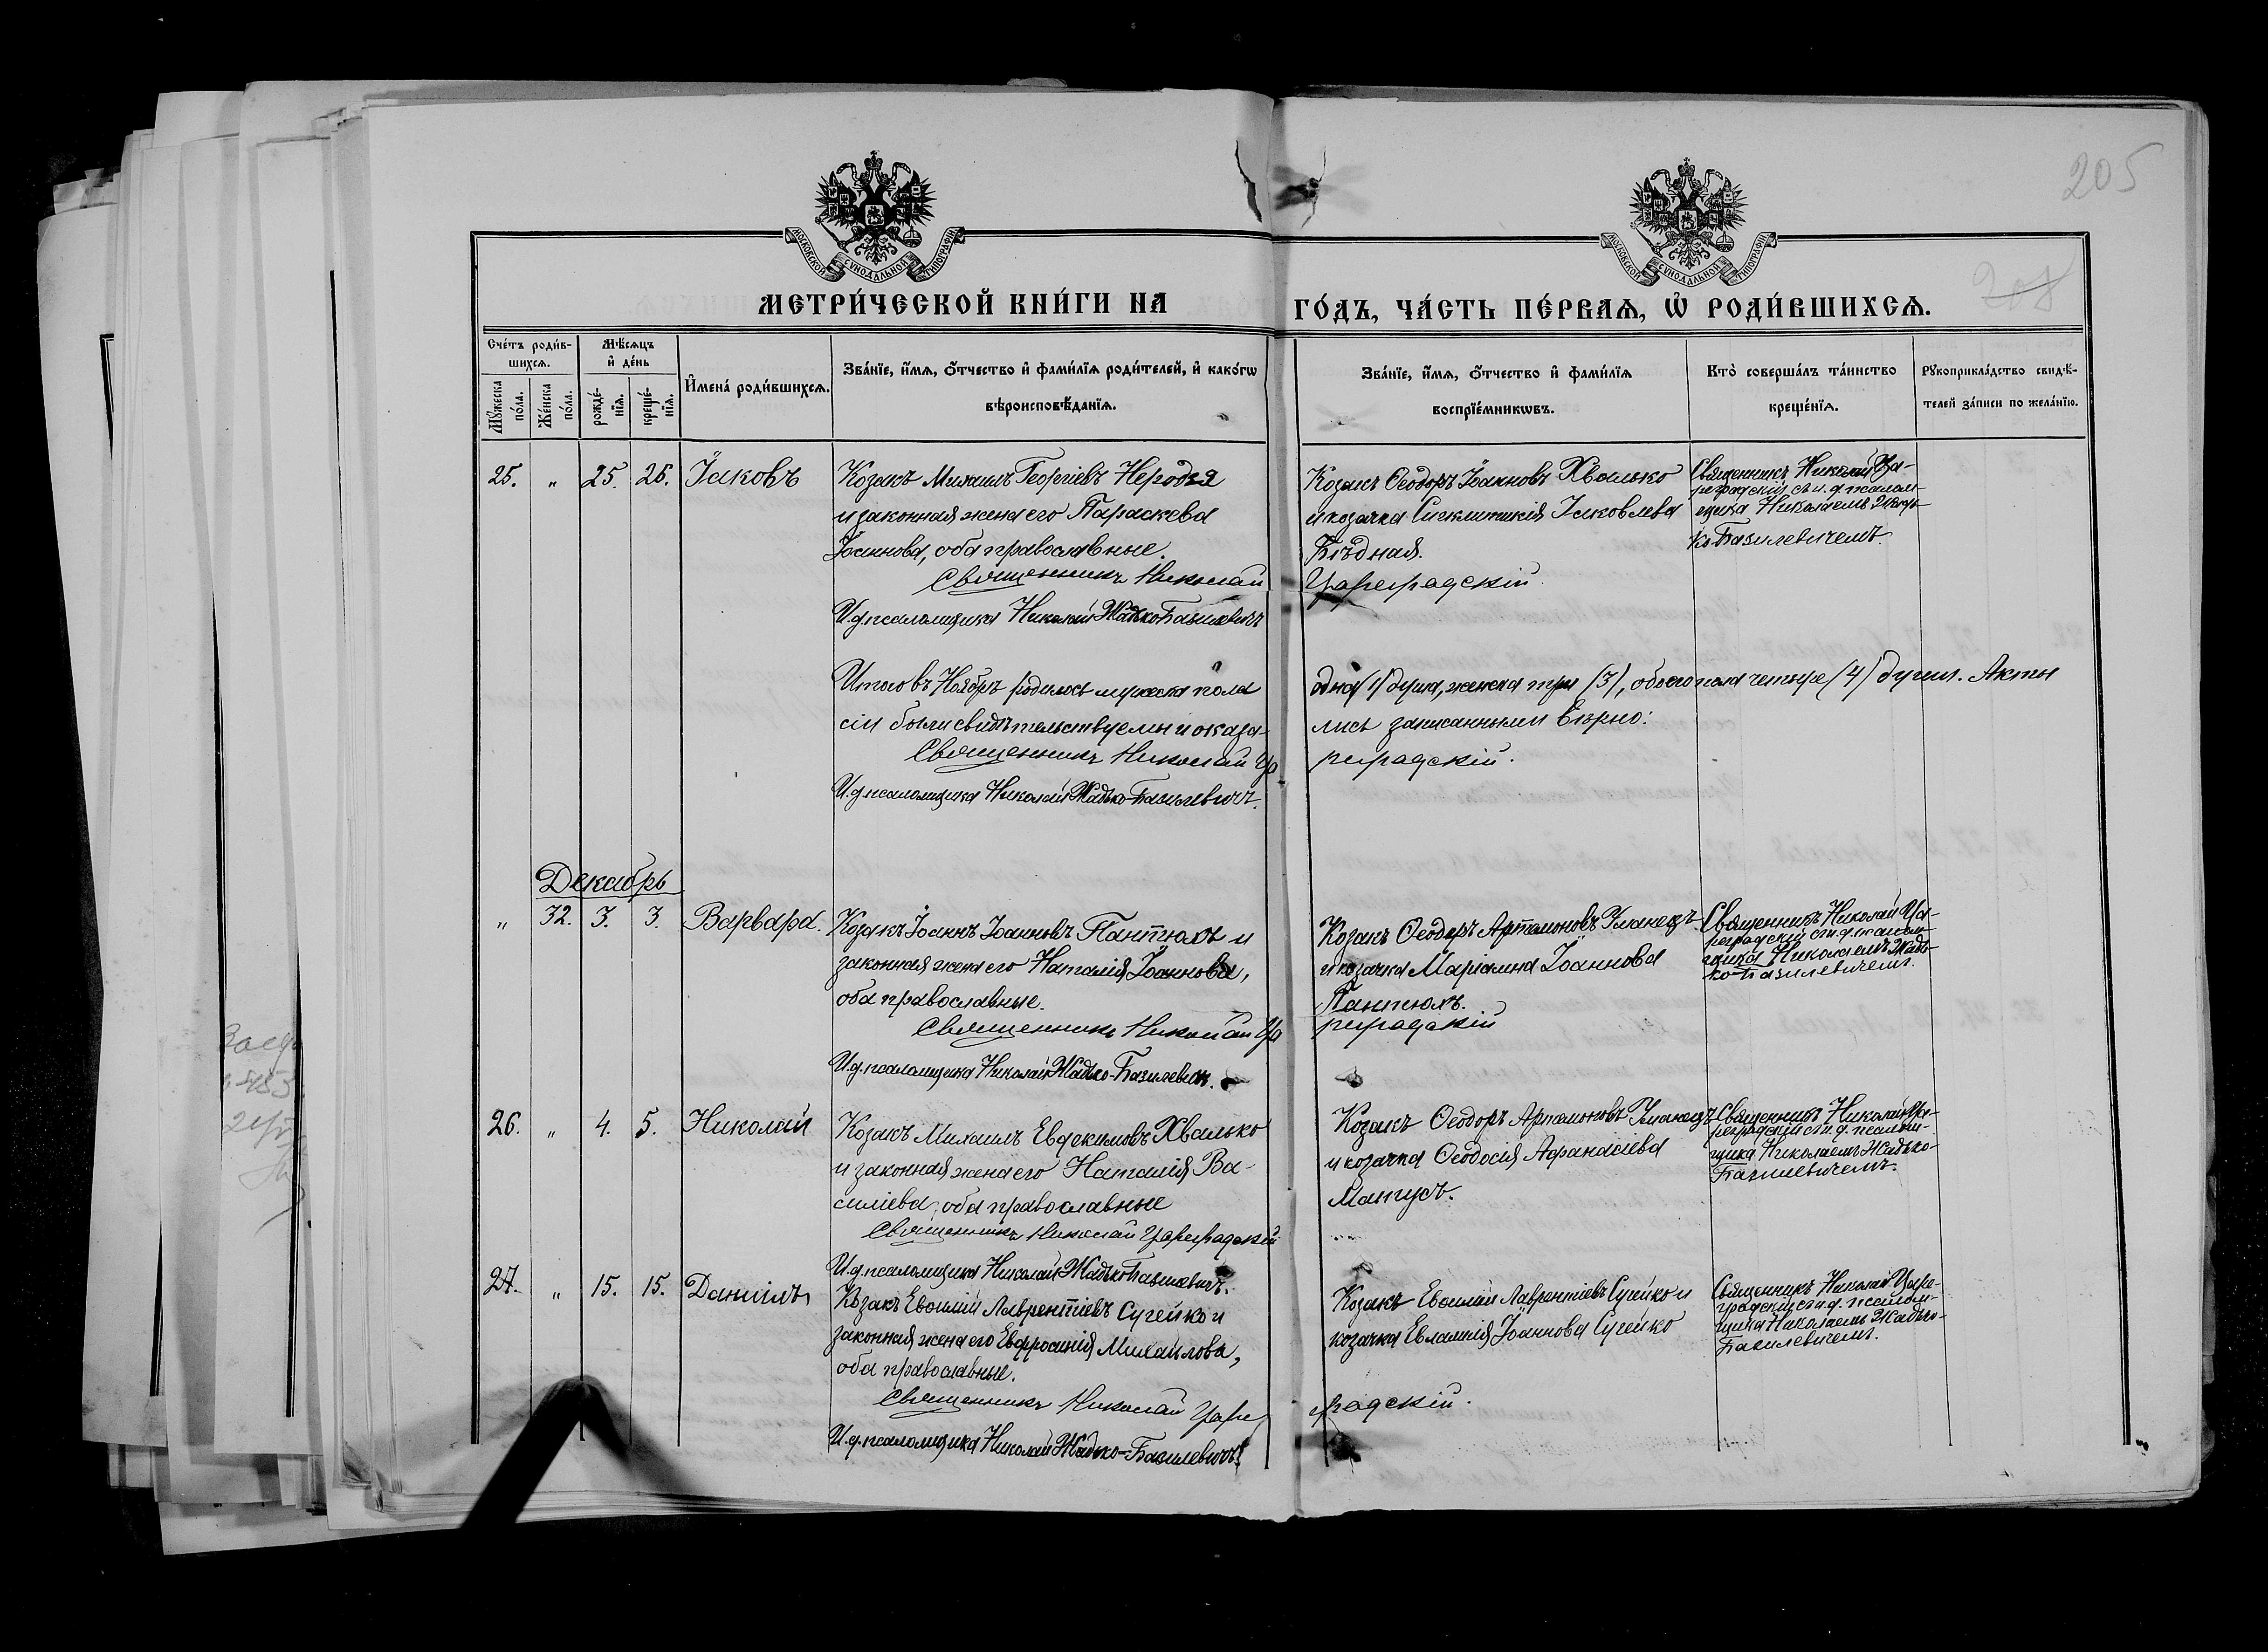 205
208
МОСКОВСКОЙ СѴНОДАЛЬНОЙ ТИПОГРАФІИ
МОСКОВСКОЙ СѴНОДАЛЬНОЙ ТИПОГРАФІИ
МЕТРИ́ЧЕСКОЙ КНИ́ГИ НА
ГО́ДЪ, ЧА́СТЬ ПЕ́РВАѦ, Ѡ҆ РОДИ́ВШИХСѦ.
Сче́тъ роди́в-
шихсѧ.
Мѣ́сѧцъ
и҆ де́нь
Мꙋ́жеска
по́ла.
Же́нска
по́ла.
рожде́-
нїѧ.
креще́-
нїѧ.
И҆мена̀ роди́вшихсѧ.
Зва́нїе, и҆́мѧ, ѻ҆́тчество и҆ фами́лїѧ роди́телей, и҆ како́гѡ
вѣроисповѣ́данїѧ.
Зва́нїе, и҆́мѧ, ѻ҆́тчество и҆ фами́лїѧ
воспрїе́мникѡвъ.
Кто̀ соверша́лъ та́инство
креще́нїѧ.
Рꙋкоприкла́дство свидѣ́-
телей за́писи по жела́нїю.
25. " 25. 26. Іаковъ
Козакъ Михаилъ Георгіевъ Неродья
и законная жена его Параскева
Іоаннова, оба православные.
Священникъ Николай
Цареградскій.
И.д. псаломщика Николай Жадько-Базилевичъ
Козакъ Ѳеодоръ Іоанновъ Хвалько
и козачка Сигклитикія Іаковлева
Бѣдная.
Священникъ Николай Ца-
реградскій съ и. д. псалом-
щика Николаемъ Жадь-
ко-Базилевичемъ.
Итого въ Ноябрѣ родилось мужеска пола
одна (1) душа, женска три (3), обоего пола четыре (4) души. Акты
сіи были свидѣтельствуемы и оказа-
лись записанными вѣрно:
Священникъ Николай Ца
реградскій.
И.д. псаломщика Николай Жадько-Базилевичъ.
Декабрь
" 32. 3. 3. Варвара.
Козакъ Іоаннъ Іоанновъ Пантюхъ и
законная жена его Наталія Іоаннова,
оба православные.
Священникъ Николай Ца
реградскій
И.д. псаломщика Николай Жадько-Базилевичъ.
Козакъ Ѳеодоръ Артамоновъ Уманецъ
и козачка Маріамна Іоаннова
Пантюхъ.
Священникъ Николай Ца-
реградскій съ и. д. псалом-
щика Николаемъ Жадь-
ко-Базилевичемъ.
26. " 4. 5. Николай
Козакъ Михаилъ Евдокимовъ Хвалько
и законная жена его Наталія Ва-
силіева, оба православные
Священникъ Николай Цареградскій
И.д. псаломщика Николай Жадько-Базилевичъ.
Козакъ Ѳеодоръ Артамоновъ Уманецъ
и козачка Ѳеодосія Аѳанасіева
Мангусъ.
Священникъ Николай Ца-
реградскій съ и. д. псалом-
щика Николаемъ Жадько-
Базилевичемъ.
27. " 15. 15. Даніилъ
Козакъ Евѳимій Лаврентіевъ Сугейко и
законная жена его Евфросинія Михайлова,
оба православные.
Священникъ Николай Царе
градскій.
И.д. псаломщика Николай Жадько-Базилевичъ.
Козакъ Евѳимій Лаврентіевъ Сугейко и
козачка Евлампія Іоаннова Сугейко
Священникъ Николай Царе-
градскій съ и. д. псалом-
щика Николаемъ Жадько-
Базилевичемъ.